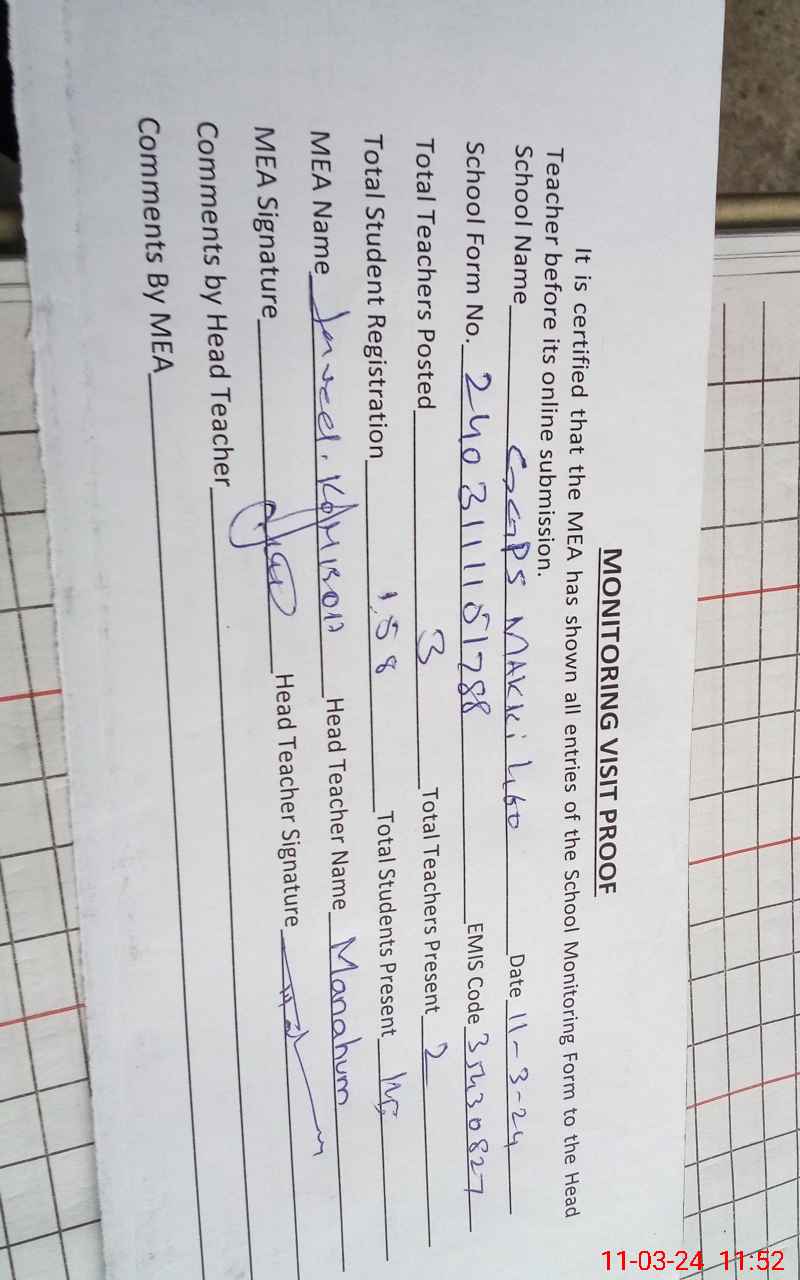 MONITORING VISIT PROOF
It is certified that the MEA has shown all entries of the School Monitoring Form to the Head
Teacher before its online submission.
School Name GGPS MAKKi 460 Date 11-3-24
School Form No. 2403111101788 EMIS Code 35430827
Total Teachers Posted 3 Total Teachers Present 2
Total Student Registration 158 Total Students Present
MEA Name Javeed. Head Teacher Name Manahum
MEA Signature Head Teacher Signature
Comments by Head Teacher
Comments By MEA
11-03-24 11:52